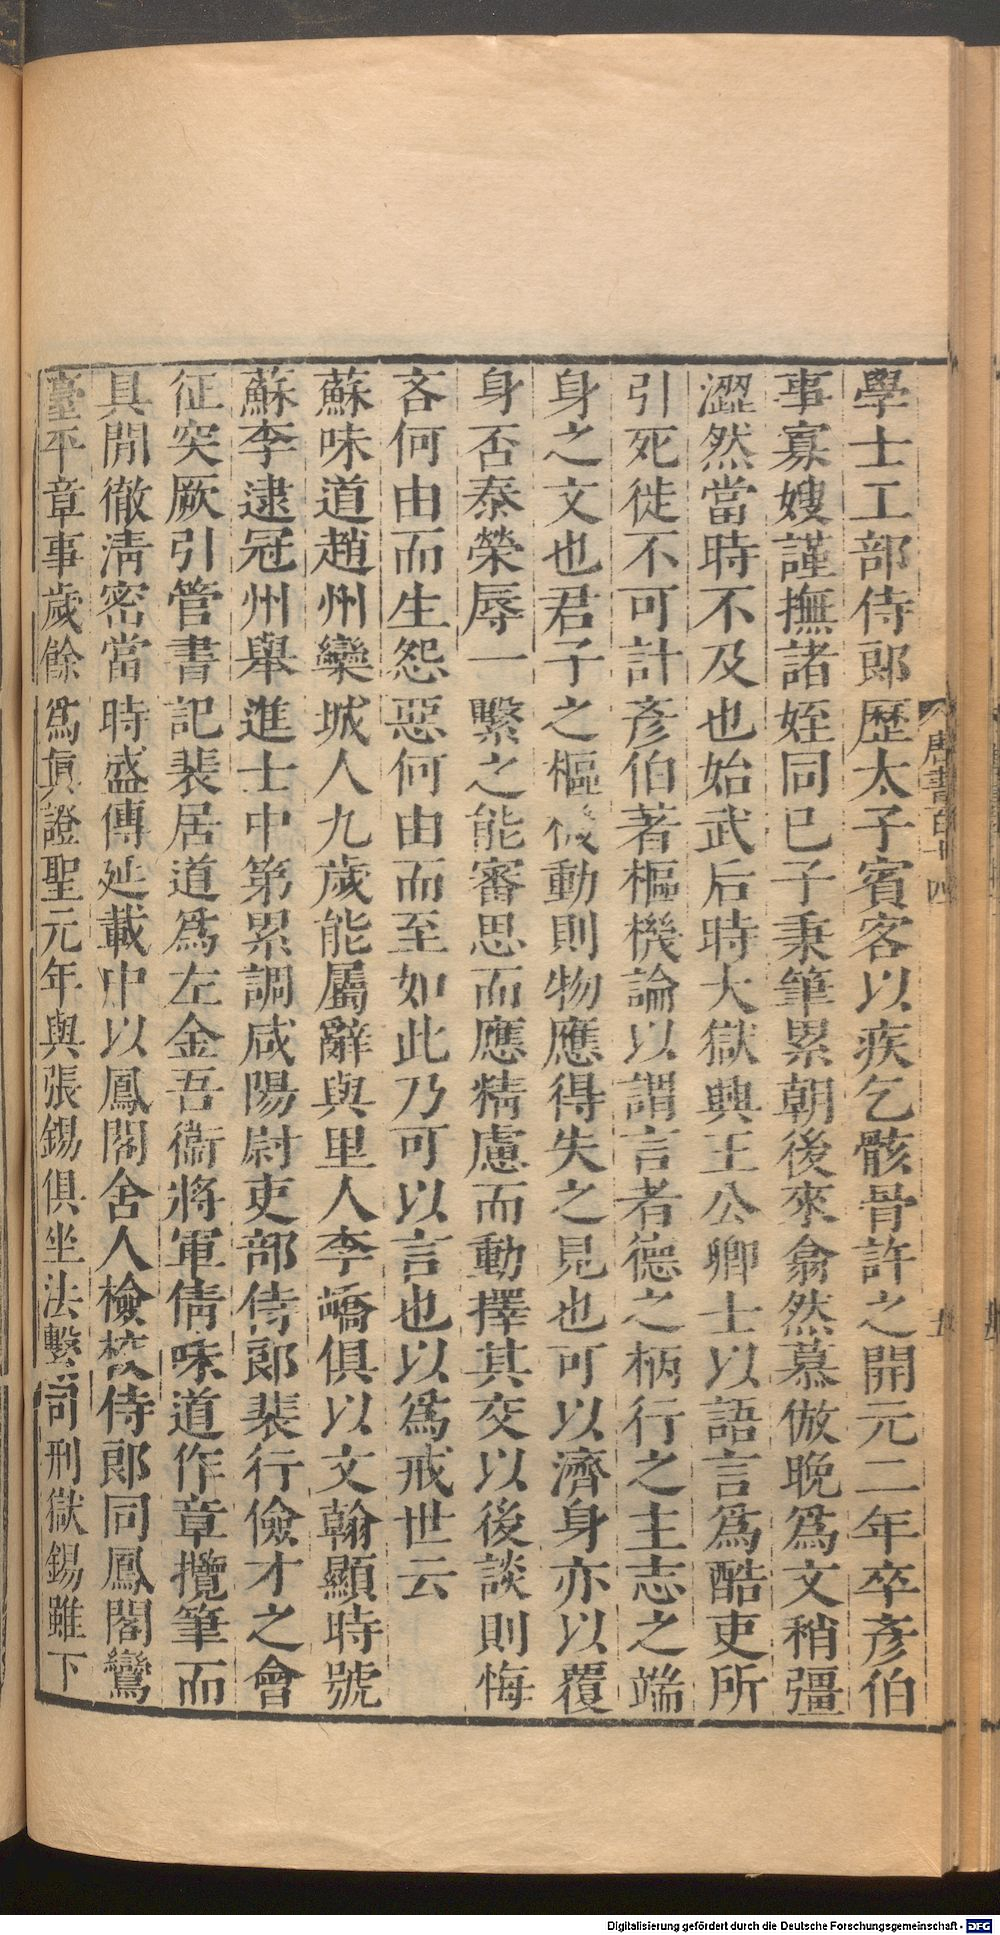 學士工部侍郎歷太子賓客以疾乞骸骨許之開元二年卒彥伯
事寡嫂謹撫諸姪同已子秉筆累朝後來翕然慕倣晚爲文稍彊
澀然當時不及也始武后時大獄興王公卿士以語言爲酷吏所
引死徙不可計彥伯著樞機論以謂言者德之柄行之主志之端
身之文也君子之樞機動則物應得失之見也可以濟身亦以覆
身否泰榮辱一繫之能審思而應精慮而動擇其交以後談則悔
吝何由而生怨惡何由而至如此乃可以言也以爲戒世云
蘇味道趙州欒城人九歲能屬辭與里人李嶠俱以文翰顯時號
蘇李逮冠州舉進士中第累調咸陽尉吏部侍郎裴行儉才之會
征突厥引管書記裴居道爲左金吾衞將軍倩味道作章攬筆而
具閒徹淸密當時盛傳延載中以鳳閣舍人檢校侍郎同鳳閣鸞
臺平章事歲餘爲眞證聖元年與張錫俱坐法繫司刑獄錫雖下
唐書百十四
五
Digitalisierung gefördert durch die Deutsche Forschungsgemeinschaft - DFG